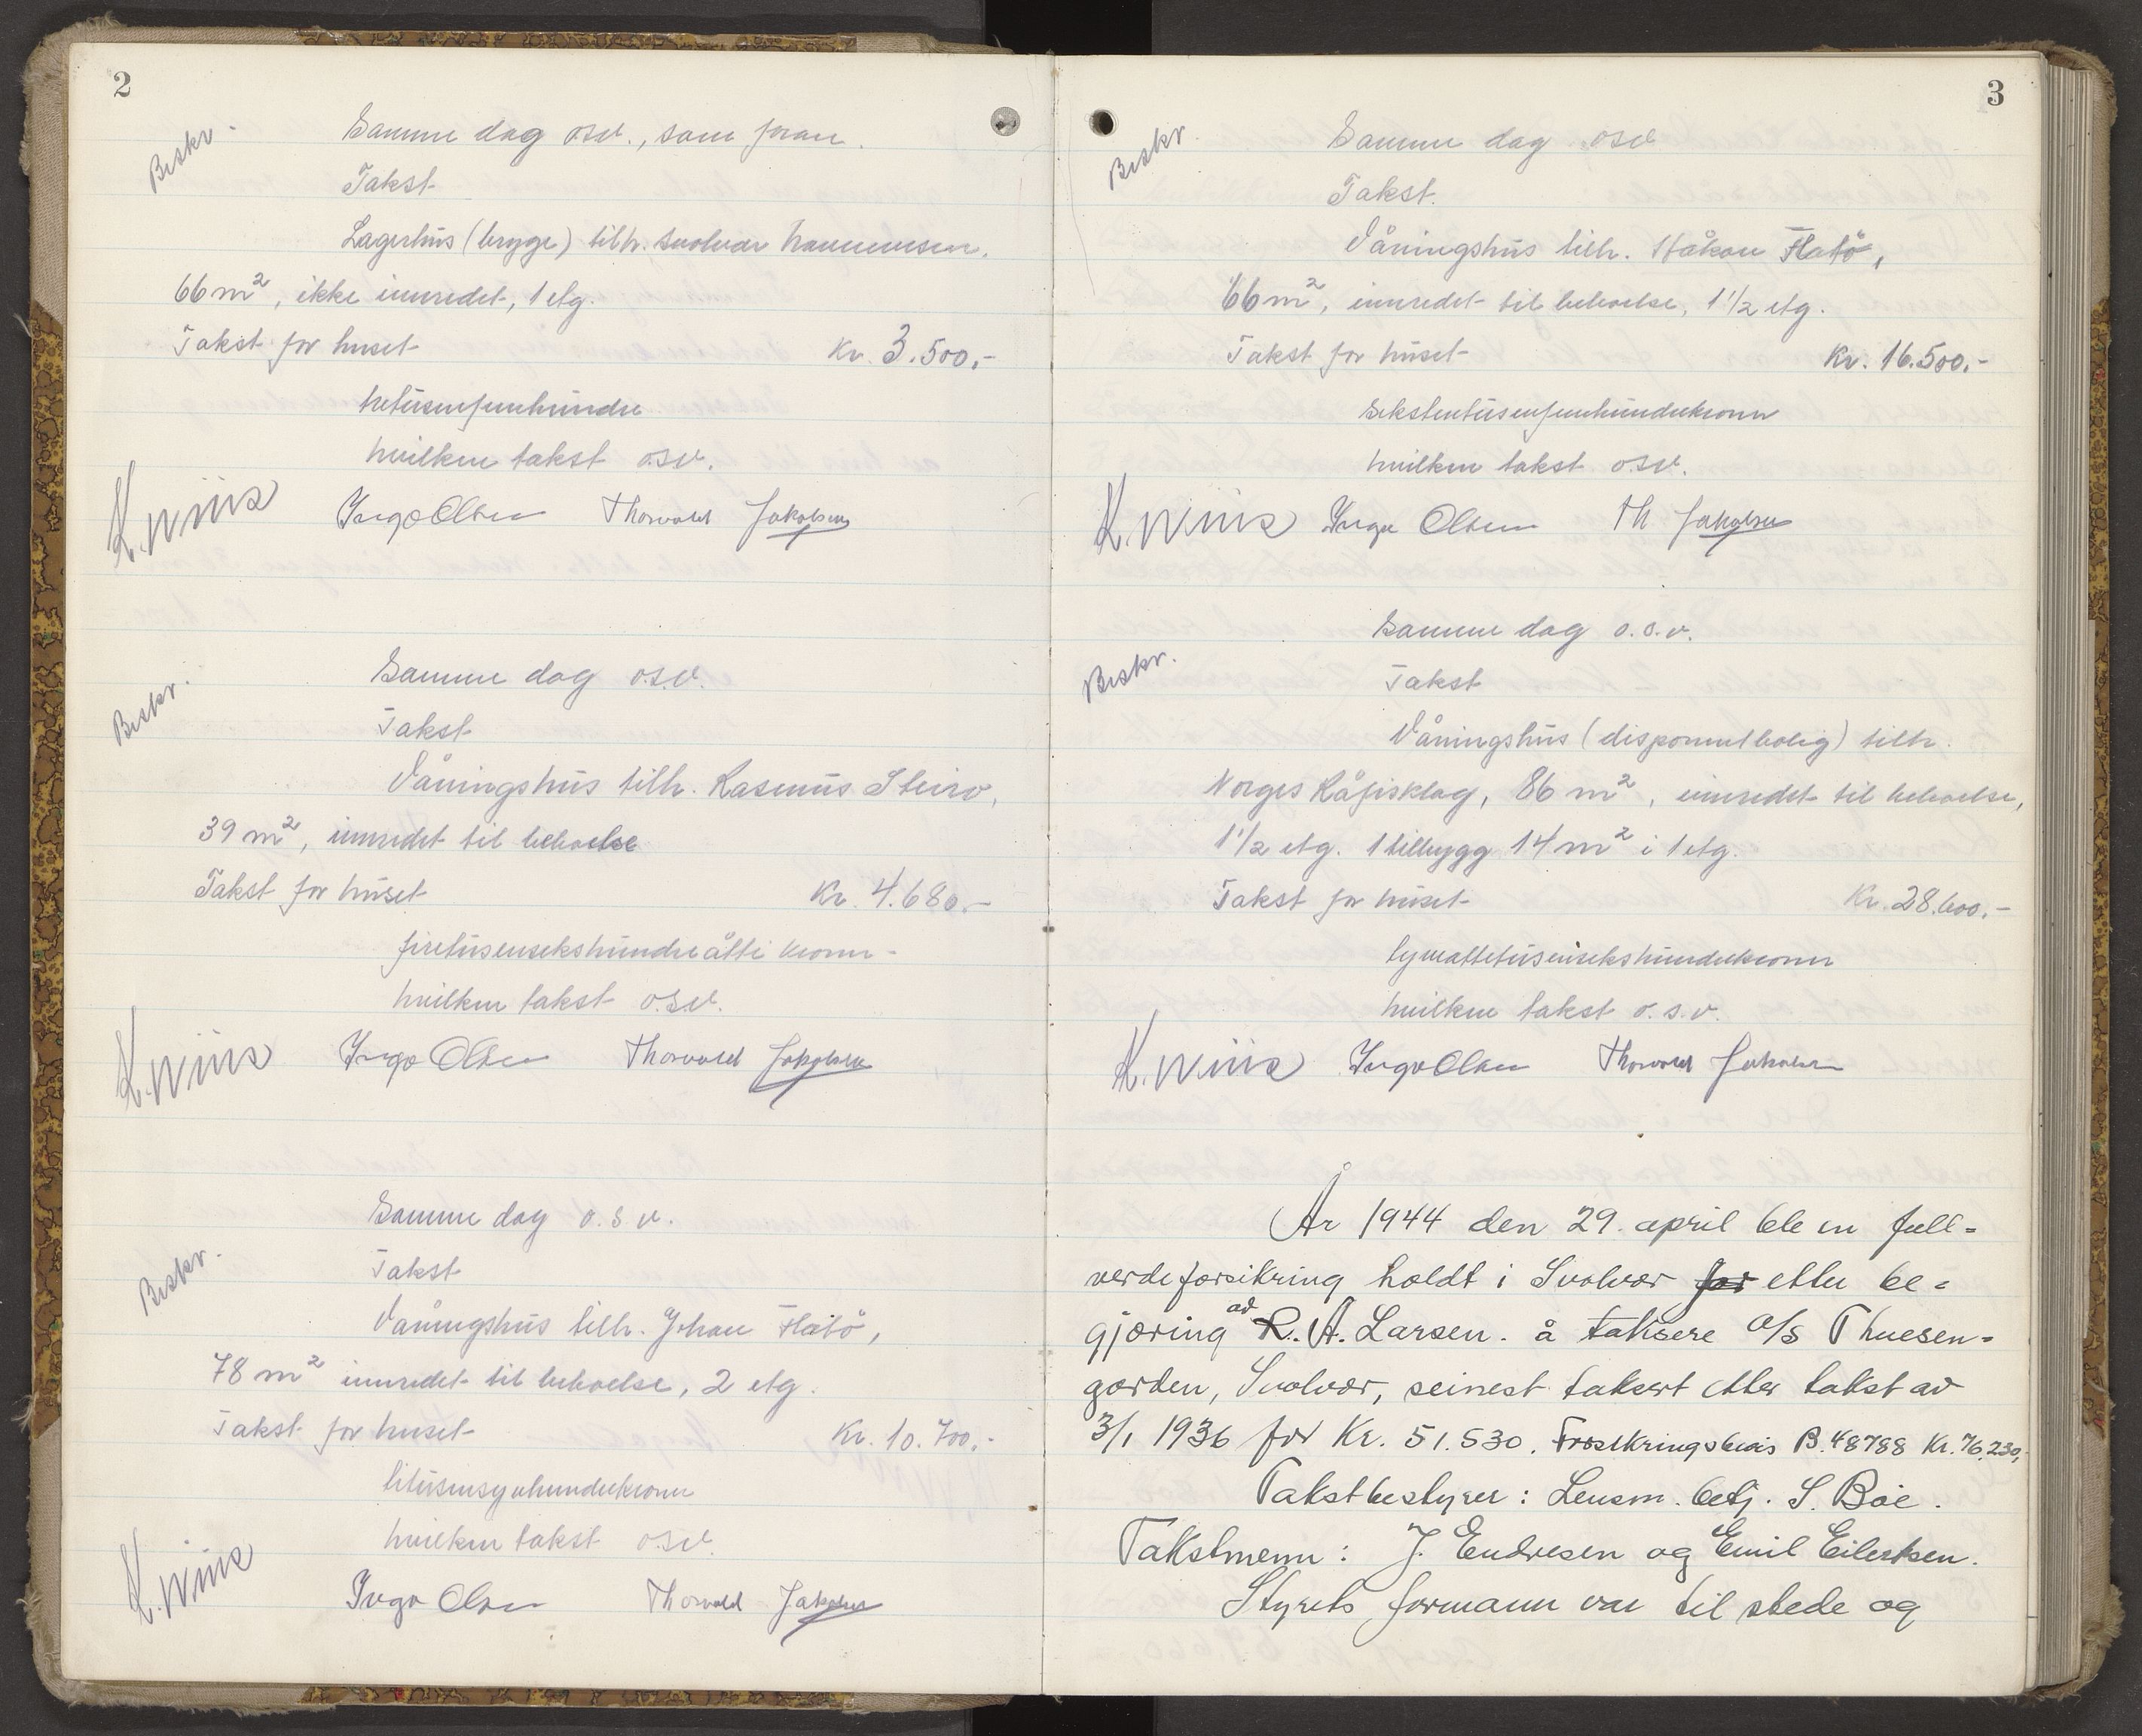 2
Beskr.
Samme dag osv., som foran.
Takst
Lagerhus (brygge) tilh. Svolvær
66 m², ikke innredet, 1 etg.
Takst for huset Kr. 3.500,-
tretusenfemhundre
hvilken takst osv.
K. Wiik Inga Olsen Thorvald Jakobsen
Beskr.
Samme dag o.s.v.
Takst
Våningshus tilh. Rasmus Steiro,
39 m², innredet til beboelse
Takst for huset Kr. 4.680.-
firetusensekshundreåtti kroner-
hvilken takst o.s.v.
K. Wiik Inga Olsen Thorvald Jakobsen
Beskr.
Samme dag o.s.v.
Takst
Våningshus tilh. Johan Flatö,
78 m² innredet til beboelse, 2 etg.
Takst for huset Kr. 10.700,-
titusensyvhundrekroner
hvilken takst osv.
K. Wiik Inga Olsen Thorvald Jakobsen
3
Beskr.
Samme dag osv
Takst.
Våningshus tilh. Håkon Flatö,
66 m², innredet til beboelse, 1 1/2 etg.
Takst for huset Kr. 16.500.-
sekstentusenfemhundrekroner
hvilken takst osv.
K. Wiik Inga Olsen Th Jakobsen
Beskr.
Samme dag o.s.v.
Takst
Våningshus (disponentbolig) tilh.
Norges Råfisklag, 86 m², innredet til beboelse,
1 1/2 etg. 1 tilbygg 14 m² i 1 etg.
Takst for huset Kr. 28.600.-
tyveåttetusensekshundrekroner
hvilken takst o.s.v.
K. Wiik Inga Olsen Thorvald Jakobsen
År 1944 den 29. april ble en full-
verdeforsikring holdt i Svolvær for etter be-
gjæring av R. A. Larsen. å taksere A/S Thuesen-
gården, Svolvær, seinest taksert etter takst av
3/1 1936 for Kr. 51.530. Forsikringsbevis B. 48788 Kr. 76.230,-
Takstbestyrer: Lensm. betj. S. Bøe.
Takstmenn: J. Endresen og Emil Eilertsen.
Styrets formann var til stede og